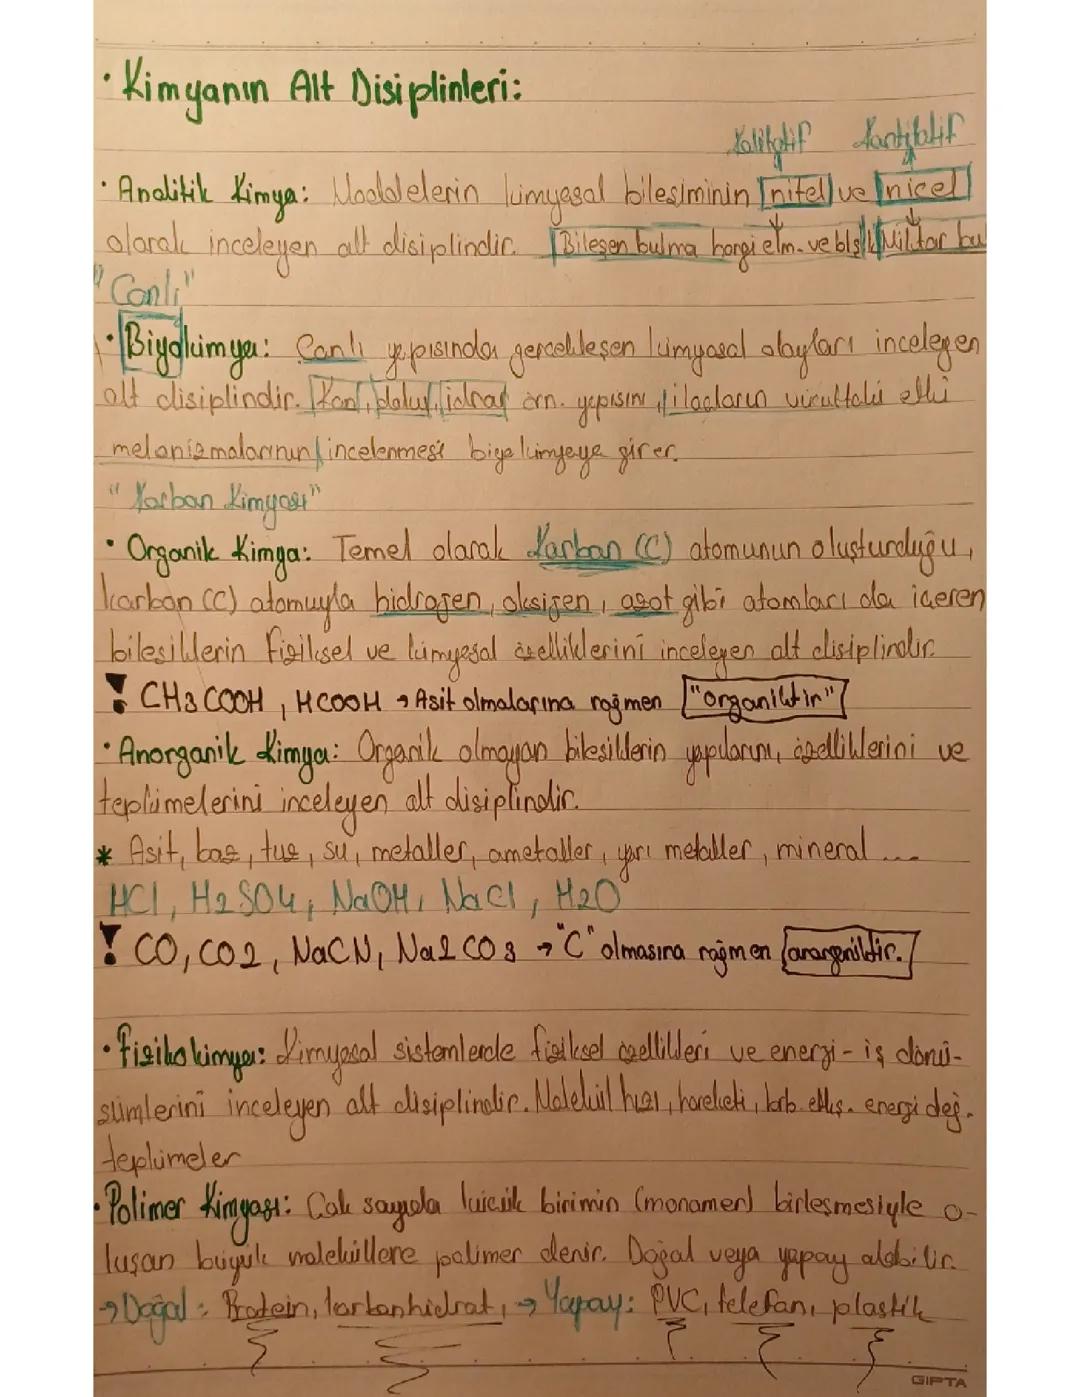 · Kimyanın Alt Disiplinleri:
Kalitatif Kantitatif
· Analitik Kimya: Maddelerin kimyasal bileşiminin nitel ve nicel
olarak inceleyen alt disiplindir. Bileşen bulma hangi elm. ve blş. Miktar bu
"Canlı"
· Biyokimya: Canlı yapısında gerçekleşen kimyasal olayları inceleyen
alt disiplindir. Kan, doku, idrar örn. yapısını, ilaçların vücuttaki etki
mekanizmalarının incelenmesi biyokimyaya girer.
"Karbon Kimyası"
· Organik Kimya: Temel olarak Karbon (C) atomunun oluşturduğu,
karbon (C) atomuyla hidrojen, oksijen, azot gibi atomları da içeren
bileşiklerin fiziksel ve kimyasal özelliklerini inceleyen alt disiplindir.
! CH3COOH, HCOOH → Asit olmalarına rağmen "organiktir"
· Anorganik Kimya: Organik olmayan bileşiklerin yapılarını, özelliklerini ve
tepkimelerini inceleyen alt disiplindir.
* Asit, baz, tuz, su, metaller, ametaller, yarı metaller, mineral ...
HCl, H2SO4, NaOH, NaCl, H2O
! CO, CO2, NaCN, Na2CO3 → "C" olmasına rağmen anorganiktir.
· Fizikokimya: Kimyasal sistemlerde fiziksel özellikleri ve enerji - iş dönü-
şümlerini inceleyen alt disiplindir. Molekül hızı, hareketi, brb. etkş. enerji değ.
tepkimeler
· Polimer Kimyası: Çok sayıda küçük birimin (monomer) birleşmesiyle o-
luşan büyük moleküllere polimer denir. Doğal veya yapay olabilir.
→ Doğal: Protein, karbonhidrat, → Yapay: PVC, telefan, plastik
GIPTA